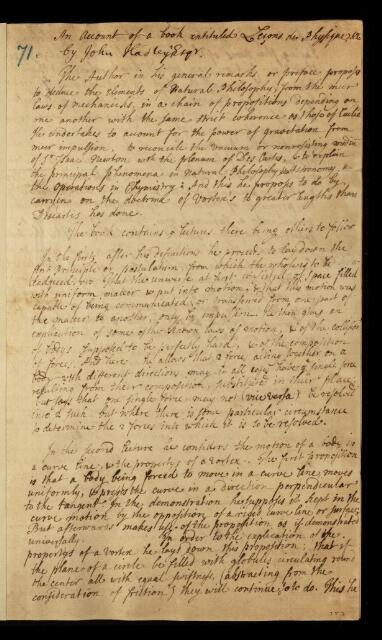 71.
An Account of a book entituled Leçons de Physique, &c
by John Hadley Esqr.
The Author in his general remarks or preface proposes
to deduce the Elements of Natural Philosophy, from the meer
laws of mechanicks, in a chain of propositions depending on
one another with the same strict coherence as those of Euclid
He undertakes to account for the power of gravitation from
meer impulsion, to reconcile the vacuum or nonresisting
of Sr. Isaac Newton with the plenum of Des Cartes, & to explain
the principal phenomena in Natural Philosophy & Astronomy, &
the operations in Chymistry: And this he proposes to do by
carrying on the doctrine of Vortex's to greater lengths than
Descartes has done.
The book contains Lectures there being others to follow
In the first, after his definitions he proceeds to lay down the
first Principle or postulatum from which the whole is to be
deduced, viz. That the universe at first consisted of space filled
with uniform matter & put into motion, & that this motion was
capable of being communicated, or transferred from one part of
the matter to another, only by impulsion. He then gives an
explication of some other known laws of motion, & of the collision
of bodys supposed to be perfectly hard, & of the composition
of forces. And here he allows that 2 forces acting together on a
body with different directions may in all cases have a single force
resulting from their composition, substituted in their place,
but says that one single force may not (vice versa) be resolved
into 2 such but where there is some particular circumstance
to determine the 2 forces into which it is to be resolved.
In the second Lecture he considers the motion of a body in
a curve line, & the propertys of a vortex. The first proposition
is that a body being forced to move in a curve line moves
uniformly, & presses the curve in a direction perpendicular
to the tangent. In the demonstration he supposes it kept in the
curve motion by the opposition of a rigid curve line or surface;
But afterwards makes use of the proposition as if demonstrated
universally. In order to the explication of the
propertys of a vortex he lays down this proposition; That if
the plane of a circle be filled with globules circulating round
the center all with equal swiftness, (abstracting from the
consideration of friction) they will continue so to do. This he